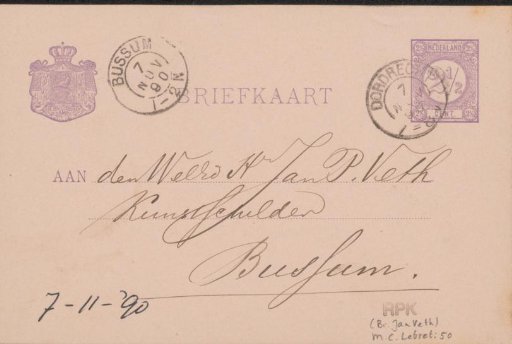 BUSSUM
7
NOV
90
1-2N
BRIEFKAART
NEDERLAND
2½
CENT
DORDRECHT
7
NOV
AAN den WelEd Hr Jan P. Veth
Kunstschilder
Bussum.
7-11-'90
RPK
(Br. Jan Veth)
M.C. Lebret: 50